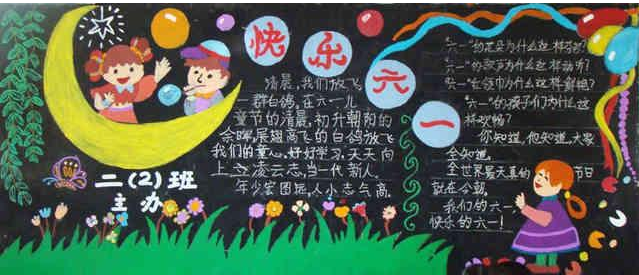 快乐六一
清晨,我们放飞
一群白鸽,在六一儿
童节的清晨,初升朝阳的
余晖,展翅高飞的白鸽放飞
我们的童心。好好学习,天天向
上,立凌云志,当一代新人,
年少家国远,人小志气高.
二(2)班
主办
"六一"的花朵为什么这样芬芳?
"六一"的歌声为什么这样动听?
"六一"红领巾为什么这样鲜艳?
"六一"的孩子们为什么这
样欢畅?
你知道,他知道,大家
全知道.
全世界最天真的 节日
就在今朝.
我们的六一,
快乐的六一!